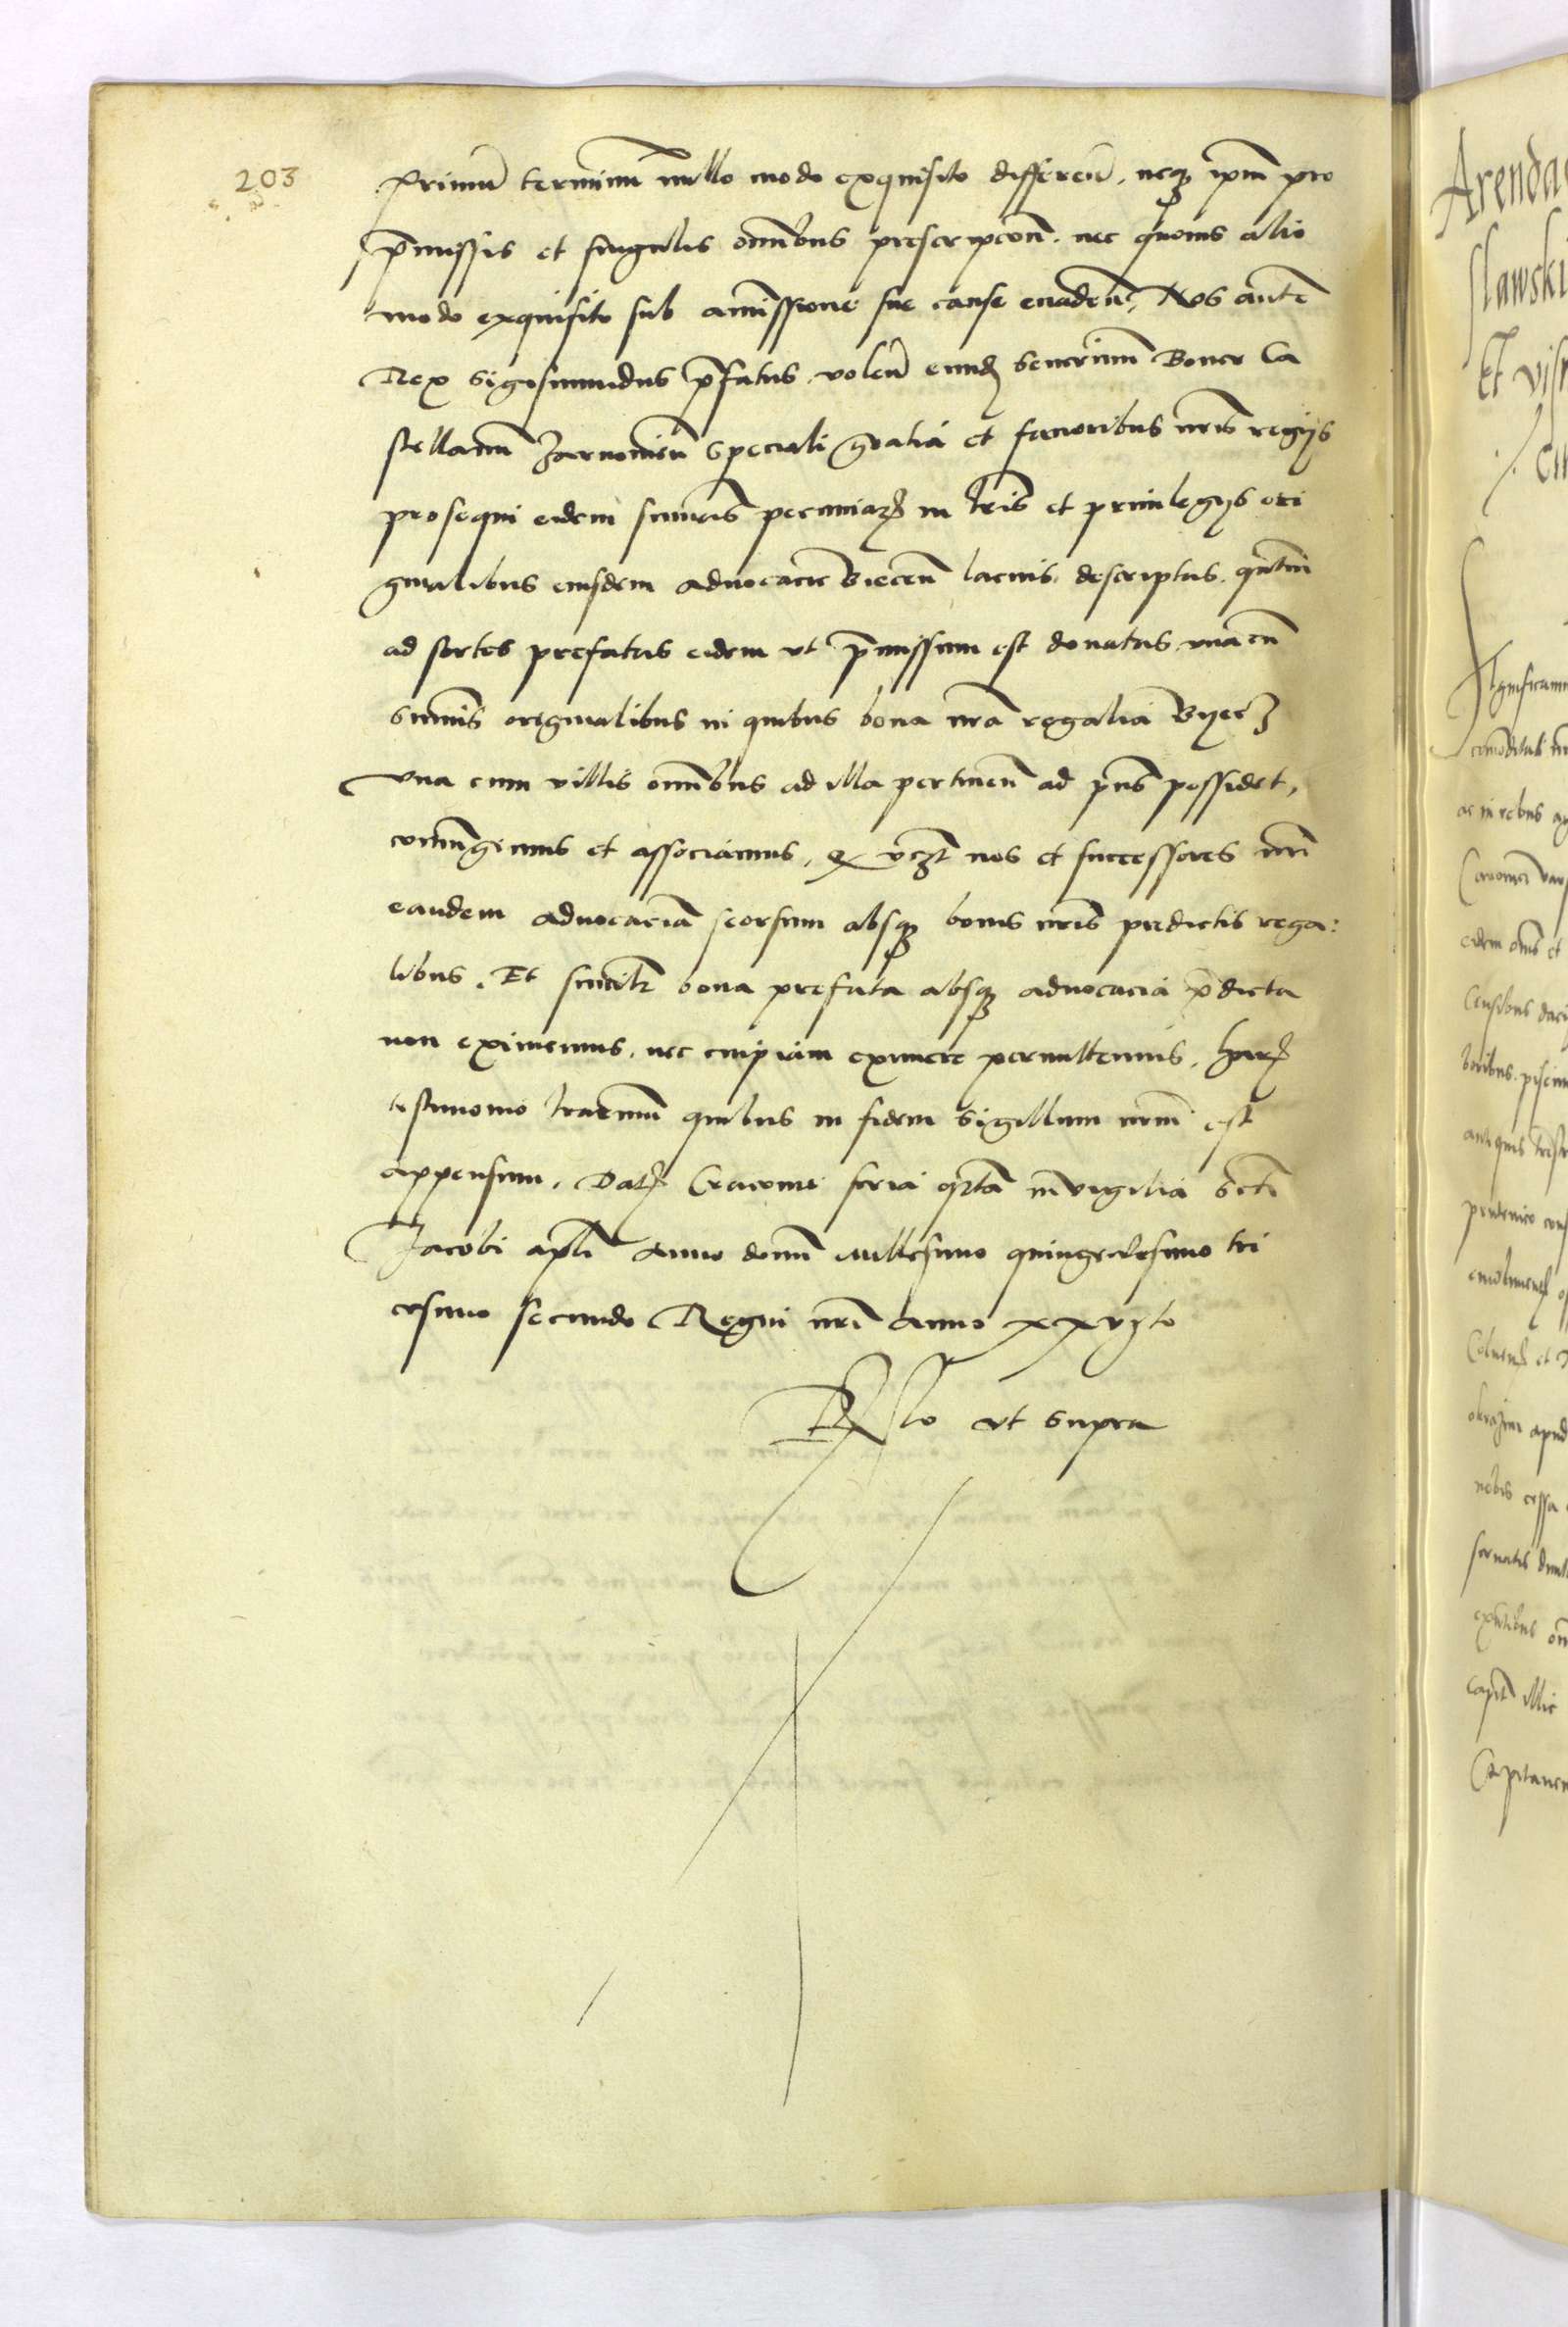 203
primu terminu nullo modo exquisito differen, neq ipm pro
pmissis et singulis omibus prescripcon. nec quovis alio
modo exquisito sub amissione sue cause evaden, Nos aute
Rex Sigismundus pfatus volen eund Severinum Boner Ca
stellanu Zarnovien speciali gratia et favoribus nris regijs
prosequi eidem sumas pecuniar in lris et privilegijs ori
ginalibus eiusdem advocacie Biecen lacius descriptas, qntum
ad sortes prefatas eidem ut pmissum est donatas, una cu
summis originalibus in quibus bona nra regalia Byecz
una cum villis omibus ad illa pertinen ad pns possidet,
coniungimus et associamus, q vczt nos et successores nri
eandem advocaciam seorsum absq bonis nris predictis rega:
libus, Et similr bona prefata absq advocacia pdicta
non eximemus, nec cuipiam eximere permittemus, har
testimonio literarum quibus in fidem Sigillum nrm est
appensum, Dat Cracovie feria qrta in vigilia Scti
Jacobi apli Anno domi Millesimo quingentesimo tri
cesimo secundo Regni nri Anno xxvjto
Rlo ut supra
Arenda
slawski
Et